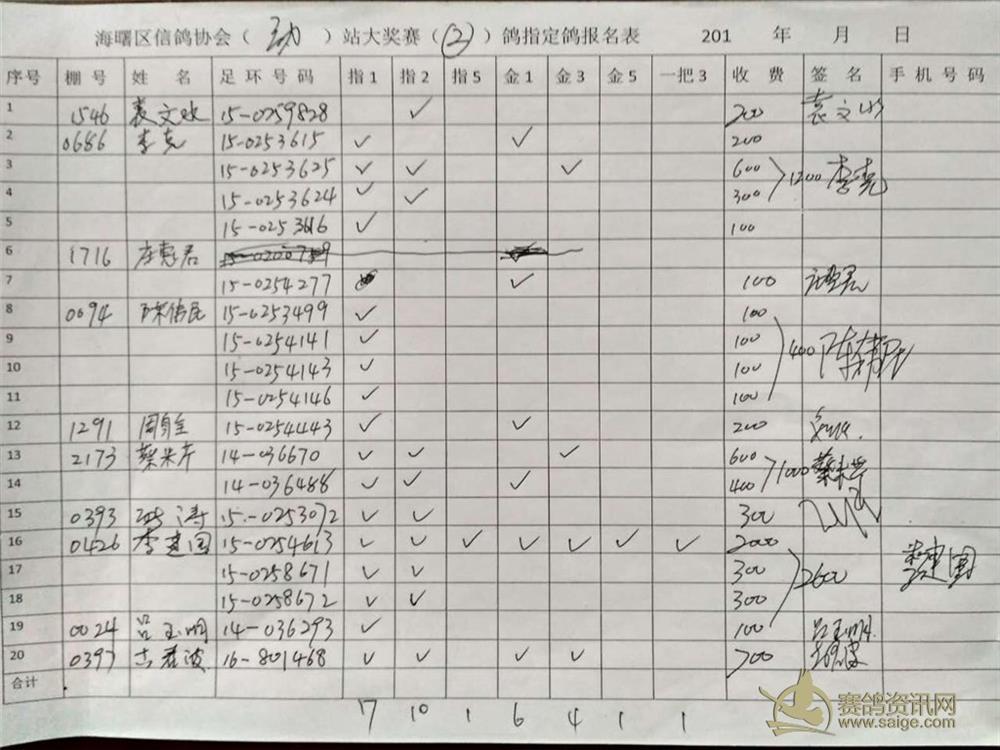 海曙区信鸽协会（ ）站大奖赛（②）鸽指定鸽报名表 201 年 月 日
序号 棚号 姓名 足环号码 指1 指2 指5 金1 金3 金5 一把3 收费 签名 手机号码
1 1546 袁文 15-0259828 ✓ 200 袁文
2 0686 李亮 15-0253615 ✓ ✓ 200
3 15-0253625 ✓ ✓ ✓ 600 1200 李亮
4 15-0253624 ✓ ✓ 300
5 15-0253616 ✓ 100
6 1716 君
7 15-0254277 ✓ 100
8 0094 陈伟民 15-0253499 ✓ 100
9 15-0254141 ✓ 100 400 陈伟民
10 15-0254143 ✓ 100
11 15-0254146 ✓ 100
12 1291 周 15-0254443 ✓ ✓ 200
13 2173 蔡米芹 14-036670 ✓ ✓ ✓ 600 1000 蔡米芹
14 14-036488 ✓ ✓ ✓ 400
15 0393 涛 15-0253092 ✓ ✓ 300
16 0426 李建国 15-0254613 ✓ ✓ ✓ ✓ ✓ ✓ ✓ 2000
17 15-0258671 ✓ ✓ 300 2600 李建国
18 15-0258672 ✓ ✓ 300
19 0024 吕玉明 14-036293 ✓ 100 吕玉明
20 0397 波 16-801468 ✓ ✓ ✓ ✓ 700
合计
17 10 1 6 4 1 1
赛鸽资讯网
www.saige.com